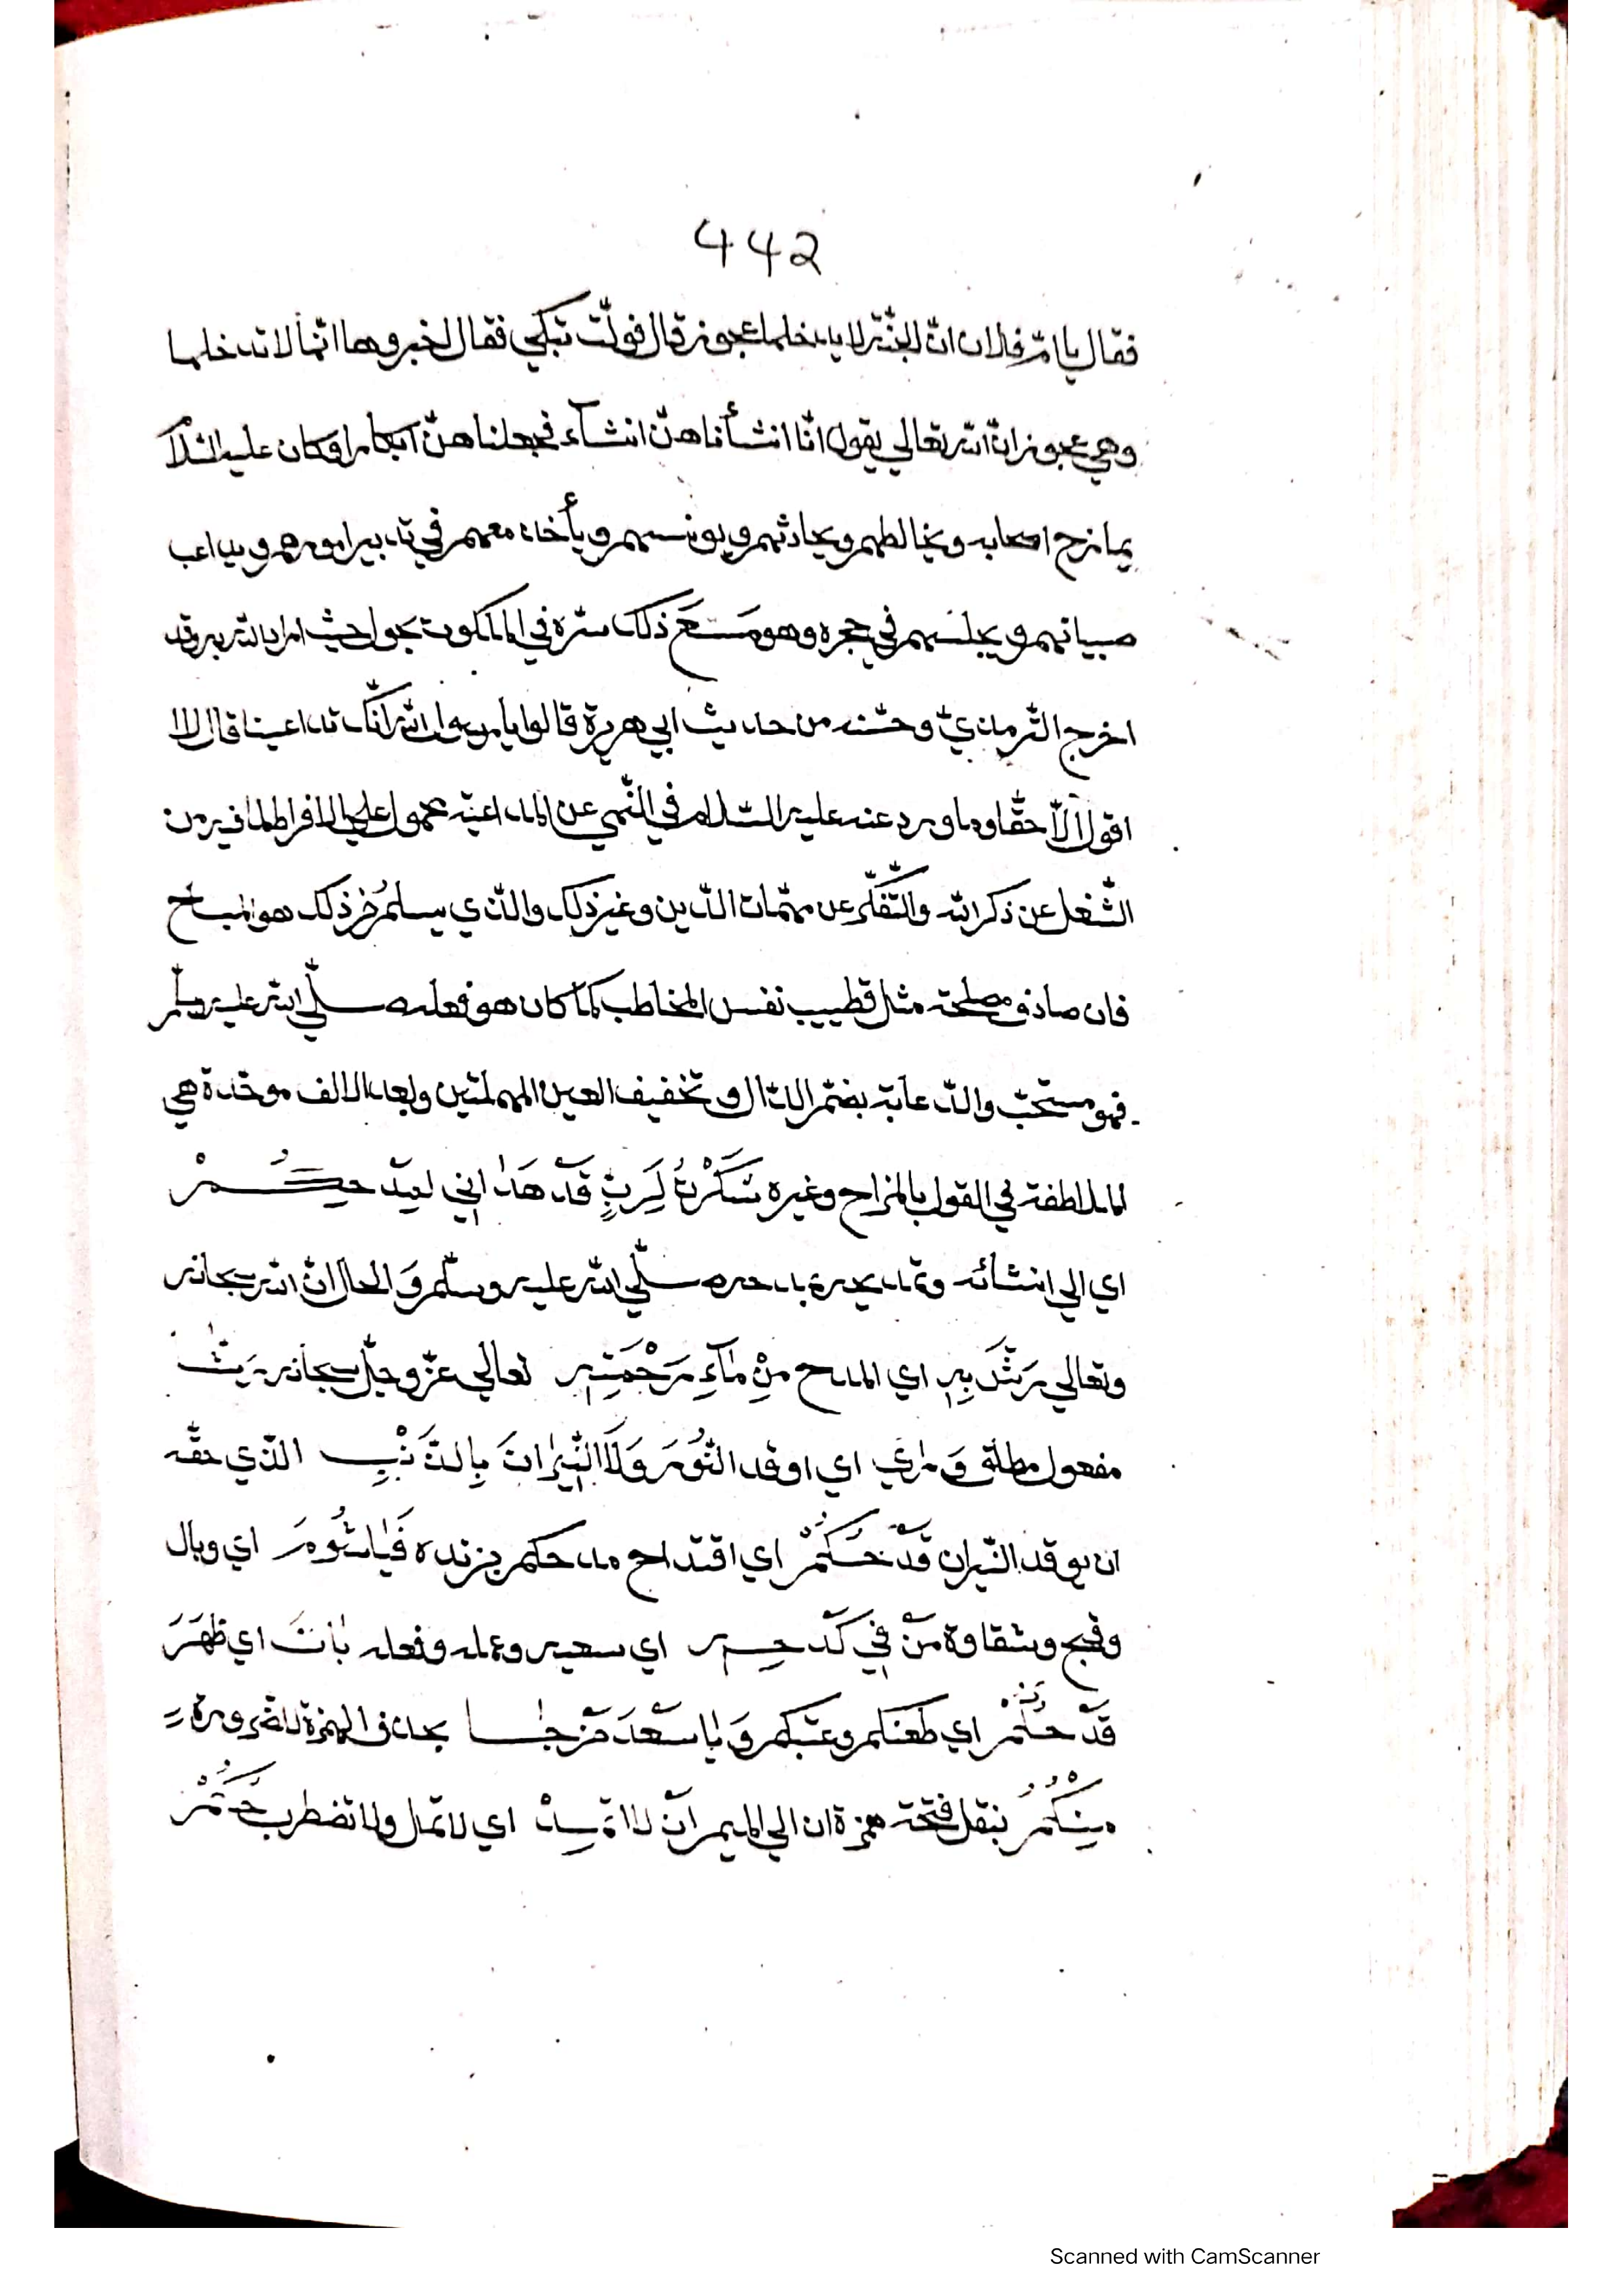 442
فقال يا امّ فلان انّ الجنّة لا يدخلها عجوز قال فولّت تبكي فقال اخبروها انّها لا تدخلها
وهي عجوز انّ الله تعالي يقول انّا انشأناهنّ انشآء فجعلناهنّ ابكارا وكان عليه السّلا
يمازح اصحابه ويخالطهم ويحادثهم ويونسهم ويأخذ معهم في تدبير امورهم ويداعب
صبيانهم ويجلسهم في حجره وهو مَعَ ذلك سرّه في الملكوت يجول حيث اراد الله به وقد
اخرج التّرمذيّ وحسّنه من حديث ابي هريرة قالوا يا رسول الله انّك تداعبنا قال لا
اقول الّا حقّا وما ورد عنه عليه السّلام في النّهي عن المداعبة محمول علي الافراط لما فيه من
الشّغل عن ذكر الله والتّفكّر عن مهمّات الدّين وغير ذلك والّذي يسلم من ذلك هو المباح
فان صادف مصلحة مثل تطييب نفس المخاطب كما كان هو فعله صلّي الله عليه وسلّم
فهو مستحبّ والدّعابة بضمّ الدّال وتخفيف العين المهملتين وبعد الالف موحّدة هي
الملاطفة في القول بالمزاح وغيره شَكَرْتُ لِرَبٍّ قَدْ هَدٰاني لمدحكُمْ
اي الي انشائه صلّي الله عليه وسلّم وَ الحال انّ الله سبحانه
وتعالي رَشَّ بِهِ اي المدح مِنْ مٰآءِ رَحْمَتِهِ تعالي عزّ وجلّ سبحانه رَشّٰا
مفعول مطلق وَ اي اوقد اللُّؤمَ وَلّاالنِّيرٰانَ بِالذَّنْبِ الّذي حقّه
ان يوقد النّيران قَدْحُكُمْ اي اقتداح مدحكم بزنده فَيٰاشُومَ اي وبال
وقبح وشقاوة مَنْ فِي كَدْحِهِ اي سعيه وعمله وفعله بٰانَ اي ظَهَرَ
قَدْحُكُمْ اي طعنكم وعيبكم وَيٰا سَعْدَ مَنْ جٰا بحذف الهمزة للضّرورة
مِنْكُمُ بنقل فتحة همزة ان الي الميم اَنْ لا تمِدْ اي لا تمال ولا تضطرب